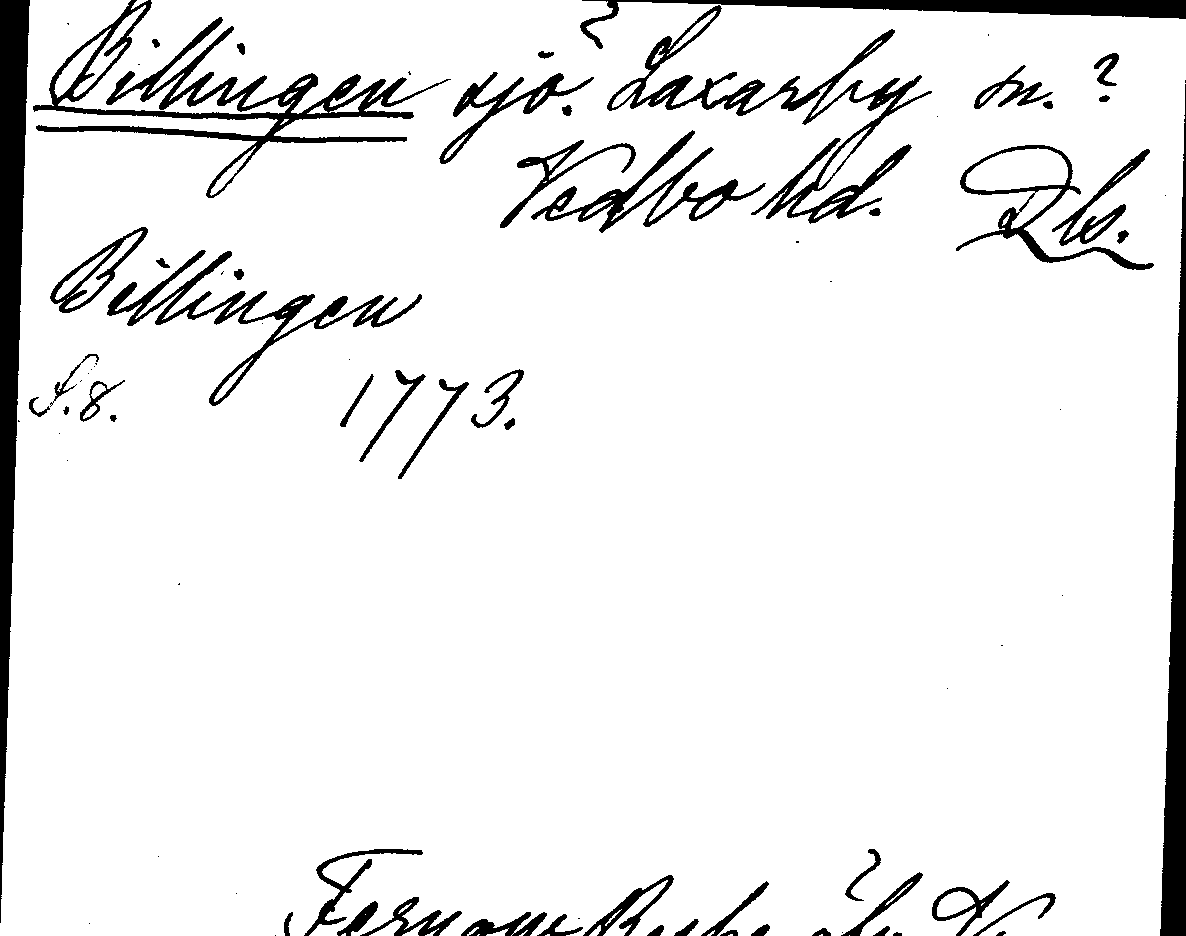 Billingen sjö? Laxarby sn.?
Vedbo hd. Dls.
Billingen
S.8. 1773.